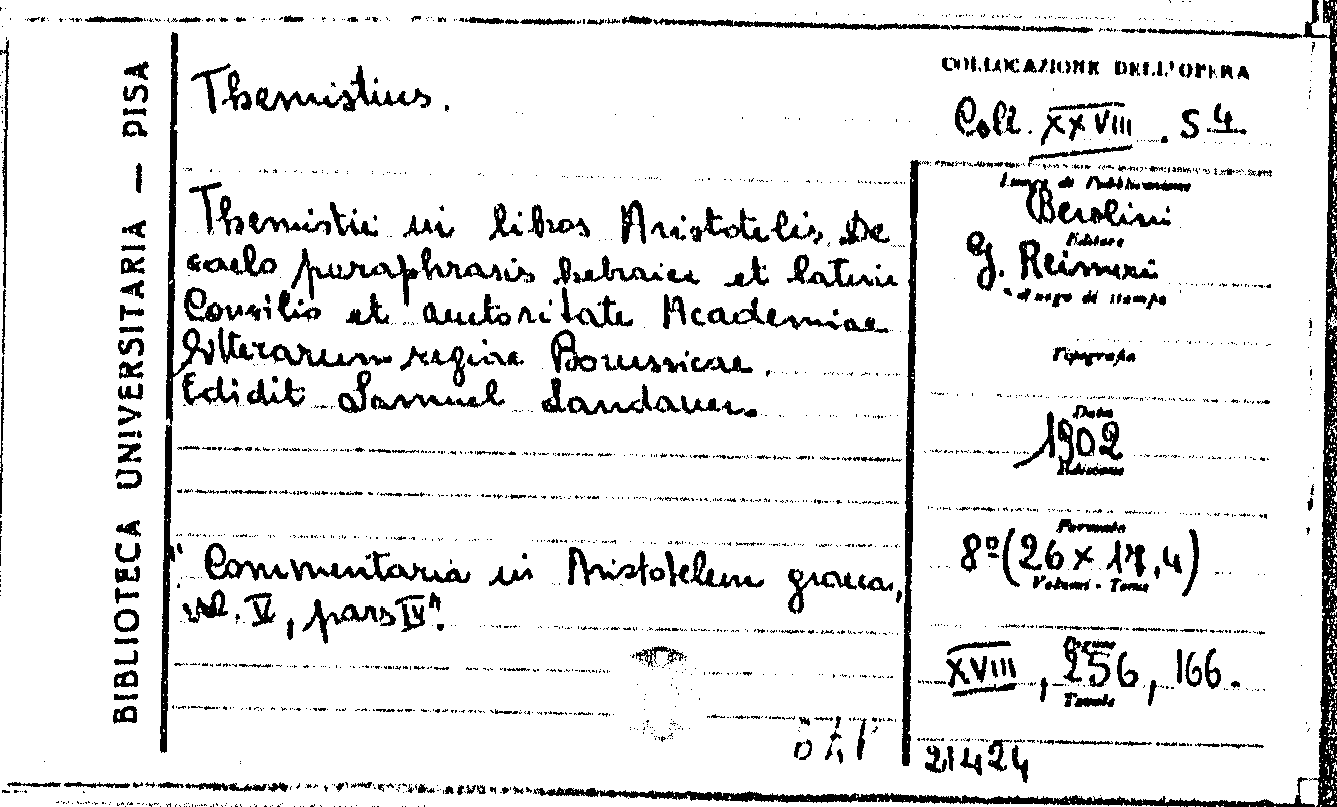 BIBLIOTECA UNIVERSITARIA — PISA
Themistius.
Themistii in libros Aristotelis De
caelo paraphrasis hebraice et latine
Consilio et auctoritate Academiae
litterarum regiae Borussicae.
Edidit Samuel Landauer.
"Commentaria in Aristotelem graeca,
vol. V, pars IV".
COLLOCAZIONE DELL'OPERA
Coll. XXVIII . S 4
Luogo di Pubblicazione
Berolini
Editore
G. Reimeri
Luogo di stampa
Tipografia
Data
1902
Edizione
Formato
8º (26 x 17,4)
Volumi - Tomo
Pagine
XVIII, 256, 166.
Tavole
21424